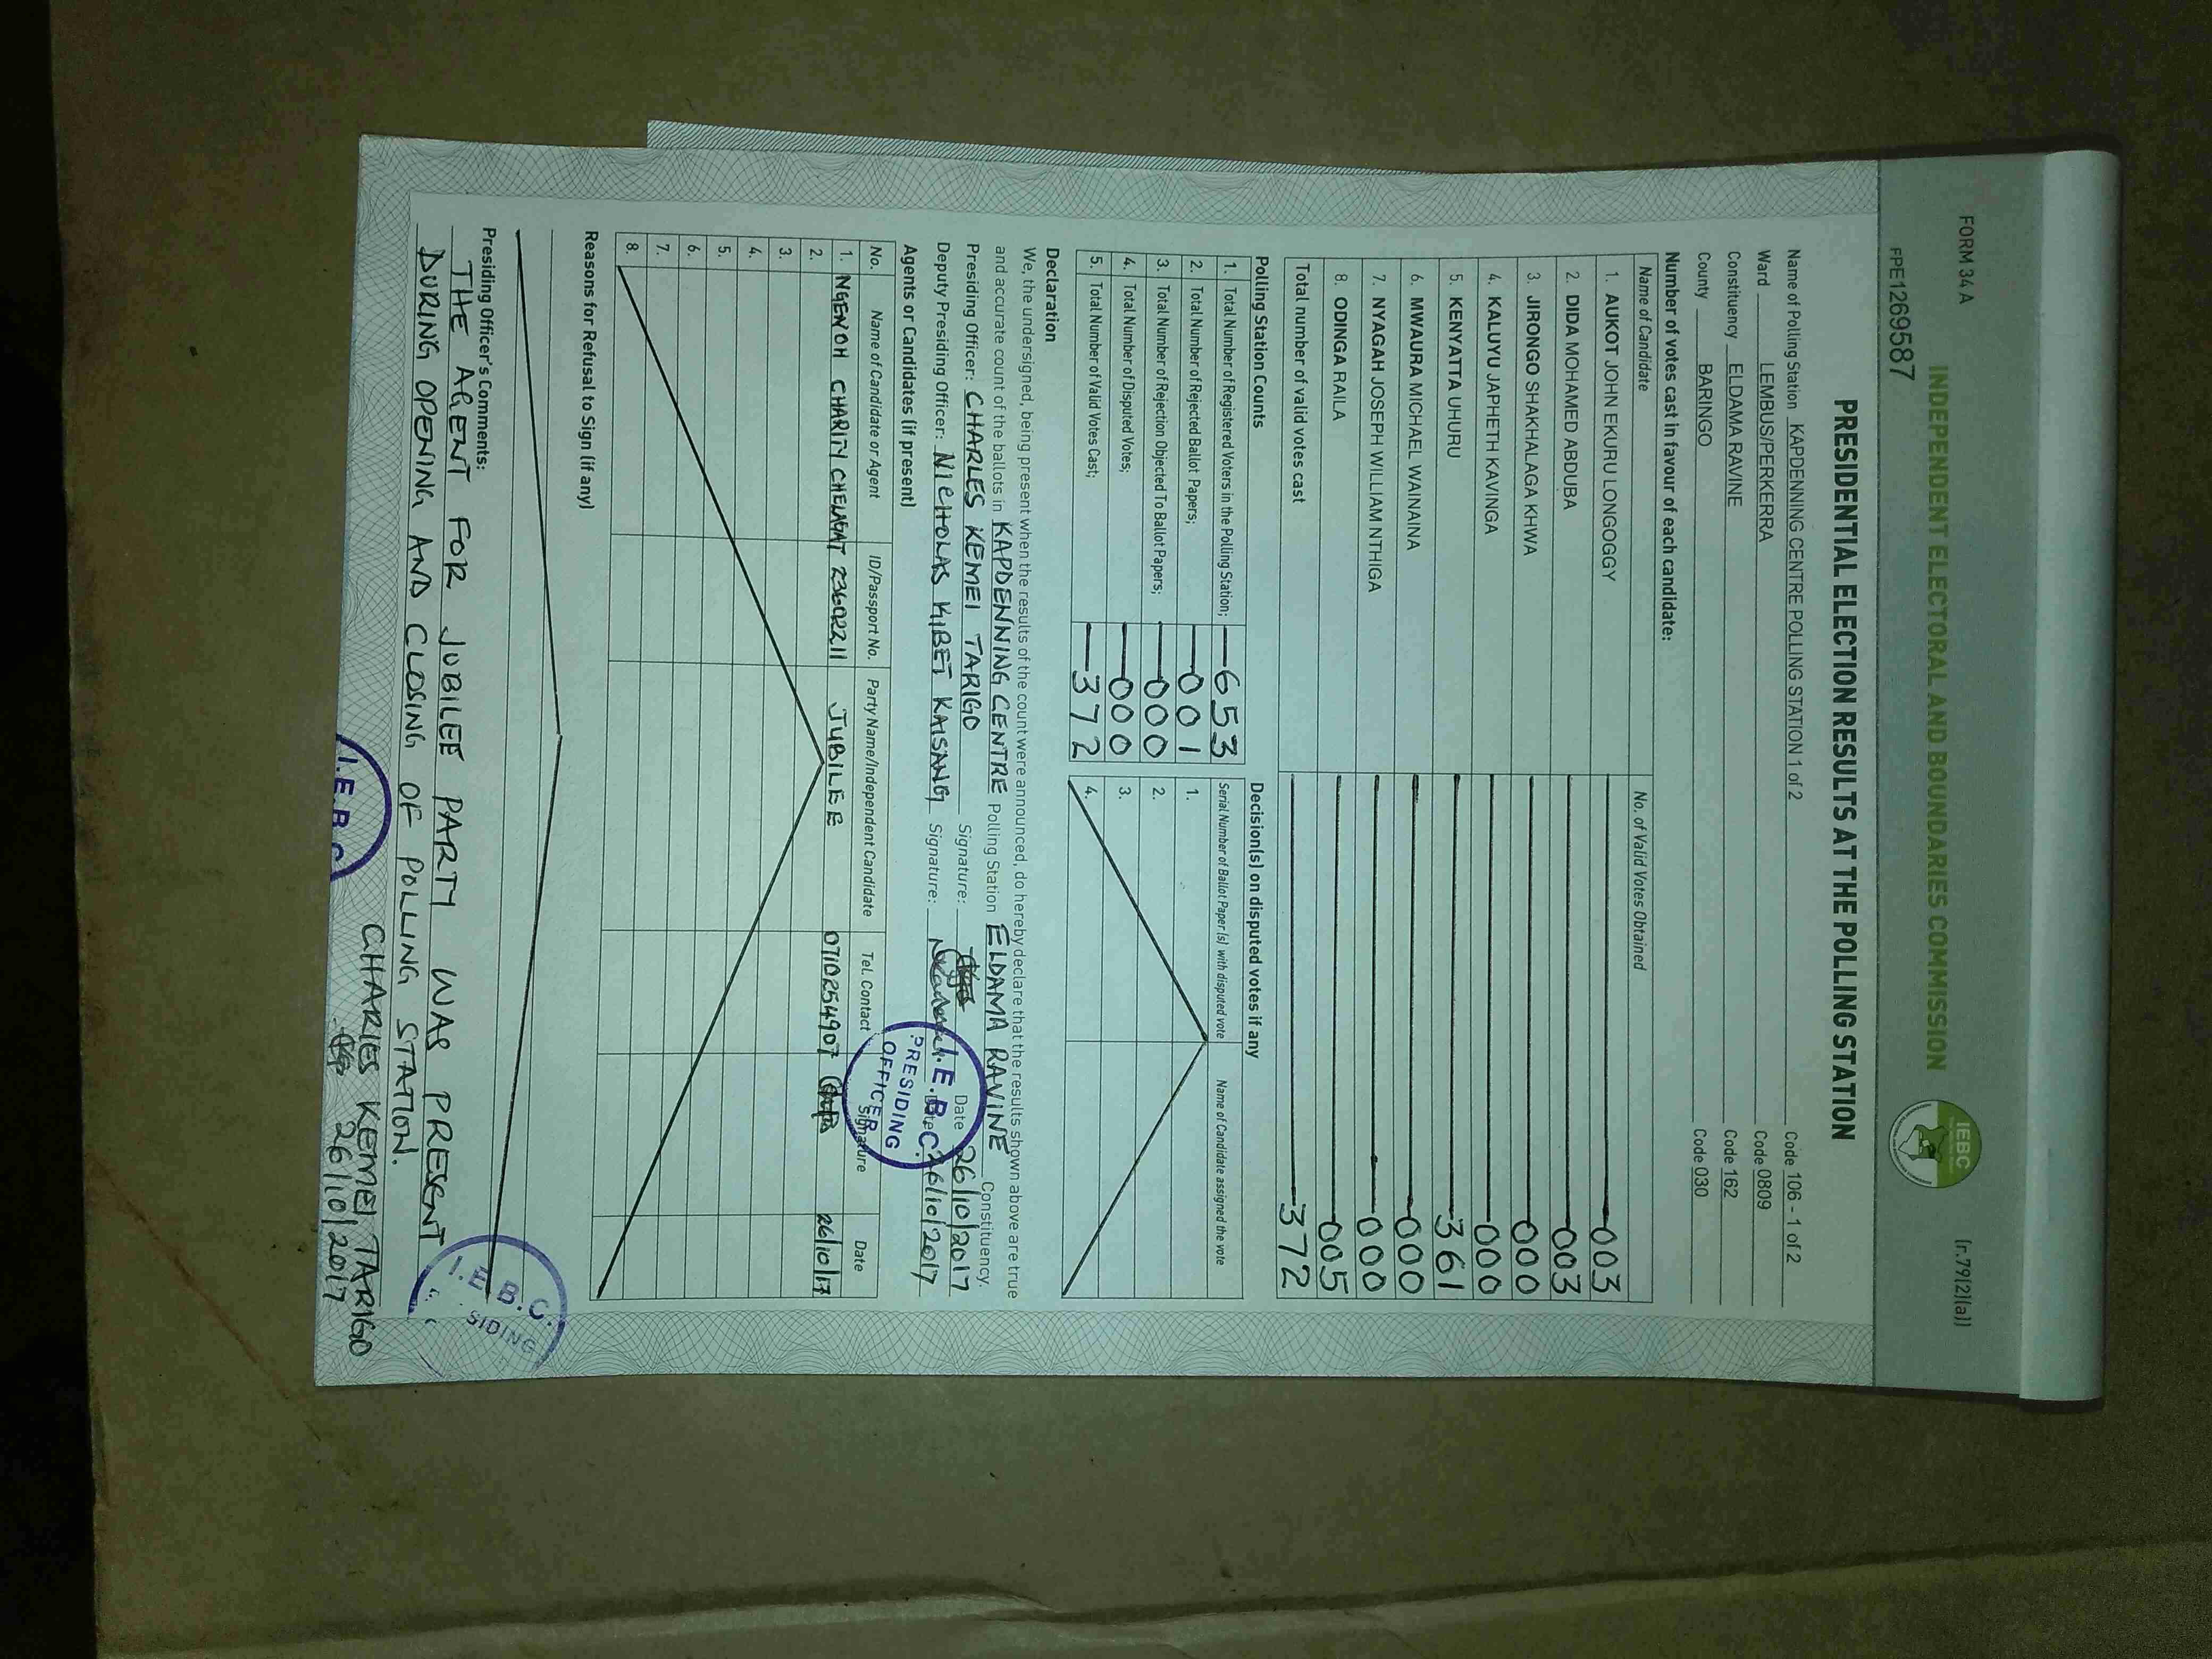 FORM 34 A
(r.79(2)(a))
INDEPENDENT ELECTORAL AND BOUNDARIES COMMISSION
IEBC
FPE1269587
PRESIDENTIAL ELECTION RESULTS AT THE POLLING STATION
Name of Polling Station KAPDENNING CENTRE POLLING STATION 1 of 2 Code 106 - 1 of 2
Ward LEMBUS/PERKERRA Code 0809
Constituency ELDAMA RAVINE Code 162
County BARINGO Code 030
Number of votes cast in favour of each candidate:
Name of Candidate No. of Valid Votes Obtained
1. AUKOT JOHN EKURU LONGOGGY 003
2. DIDA MOHAMED ABDUBA 003
3. JIRONGO SHAKHALAGA KHWA 000
4. KALUYU JAPHETH KAVINGA 000
5. KENYATTA UHURU 361
6. MWAURA MICHAEL WAINAINA 000
7. NYAGAH JOSEPH WILLIAM NTHIGA 000
8. ODINGA RAILA 005
Total number of valid votes cast 372
Polling Station Counts
1. Total Number of Registered Voters in the Polling Station; 653
2. Total Number of Rejected Ballot Papers; 001
3. Total Number of Rejection Objected To Ballot Papers; 000
4. Total Number of Disputed Votes; 000
5. Total Number of Valid Votes Cast; 372
Decision(s) on disputed votes if any
Serial Number of Ballot Paper(s) with disputed vote Name of Candidate assigned the vote
1.
2.
3.
4.
Declaration
We, the undersigned, being present when the results of the count were announced, do hereby declare that the results shown above are true
and accurate count of the ballots in KAPDENNING CENTRE Polling Station ELDAMA RAVINE Constituency.
Presiding Officer: CHARLES KEMEI TARIGO Signature: Date 26/10/2017
Deputy Presiding Officer: NICHOLAS KIBET KAISANG Signature: Date 26/10/2017
I.E.B.C.
PRESIDING
OFFICER
Agents or Candidates (if present)
No. Name of Candidate or Agent ID/Passport No. Party Name/Independent Candidate Tel. Contact Signature Date
1. NGENOH CHARITY 23602211 JUBILEE 0710254907 26/10/17
2.
3.
4.
5.
6.
7.
8.
Reasons for Refusal to Sign (if any)
Presiding Officer's Comments:
THE AGENT FOR JUBILEE PARTY WAS PRESENT
DURING OPENING AND CLOSING OF POLLING STATION.
CHARLES KEMEI TARIGO
26/10/2017
I.E.B.C
I.E.B.C.
SIDING